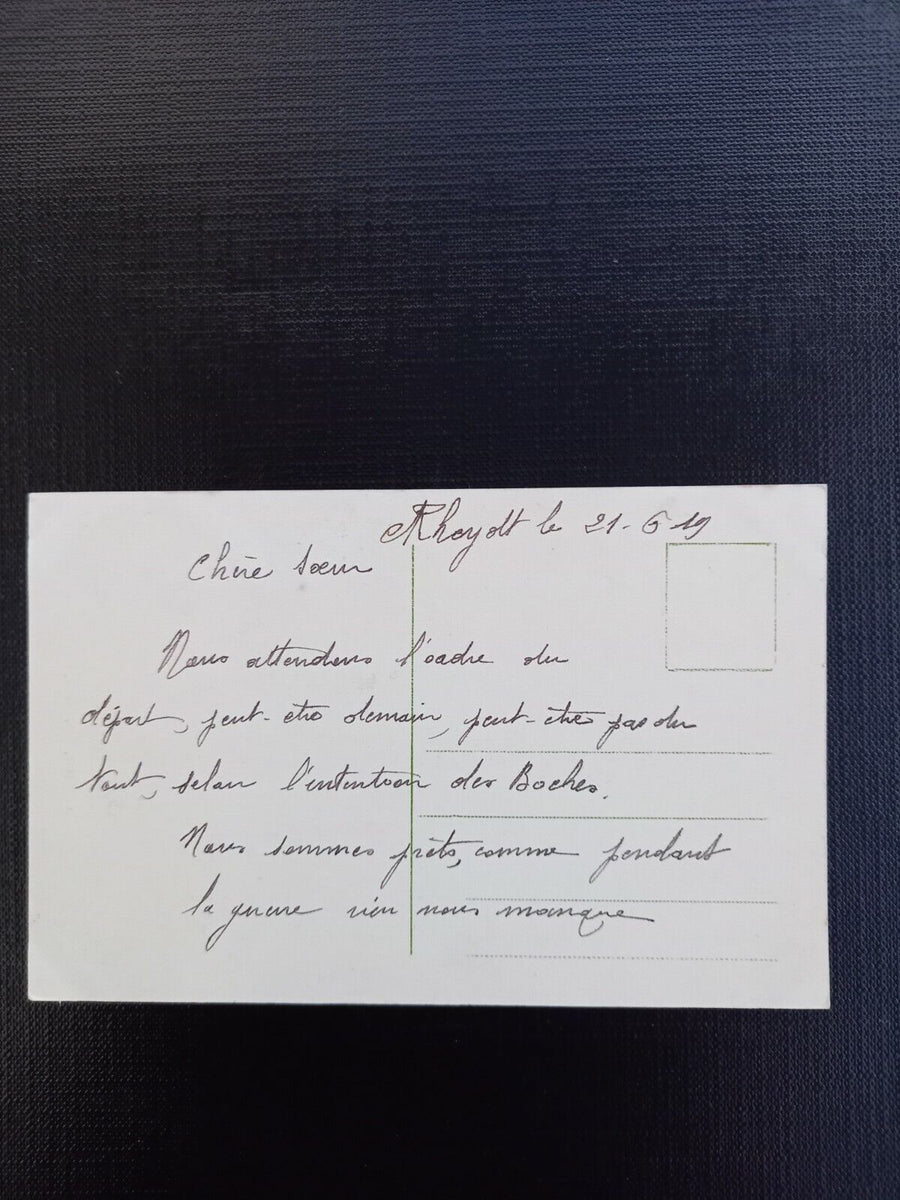 Rheydt le 21-6 19
Chère sœur
Nous attendons l'ordre du
départ, peut-etre demain, peut-etre pas du
tout, selon l'intention des Boches.
Nous sommes prêts, comme pendant
la guerre rien nous manque